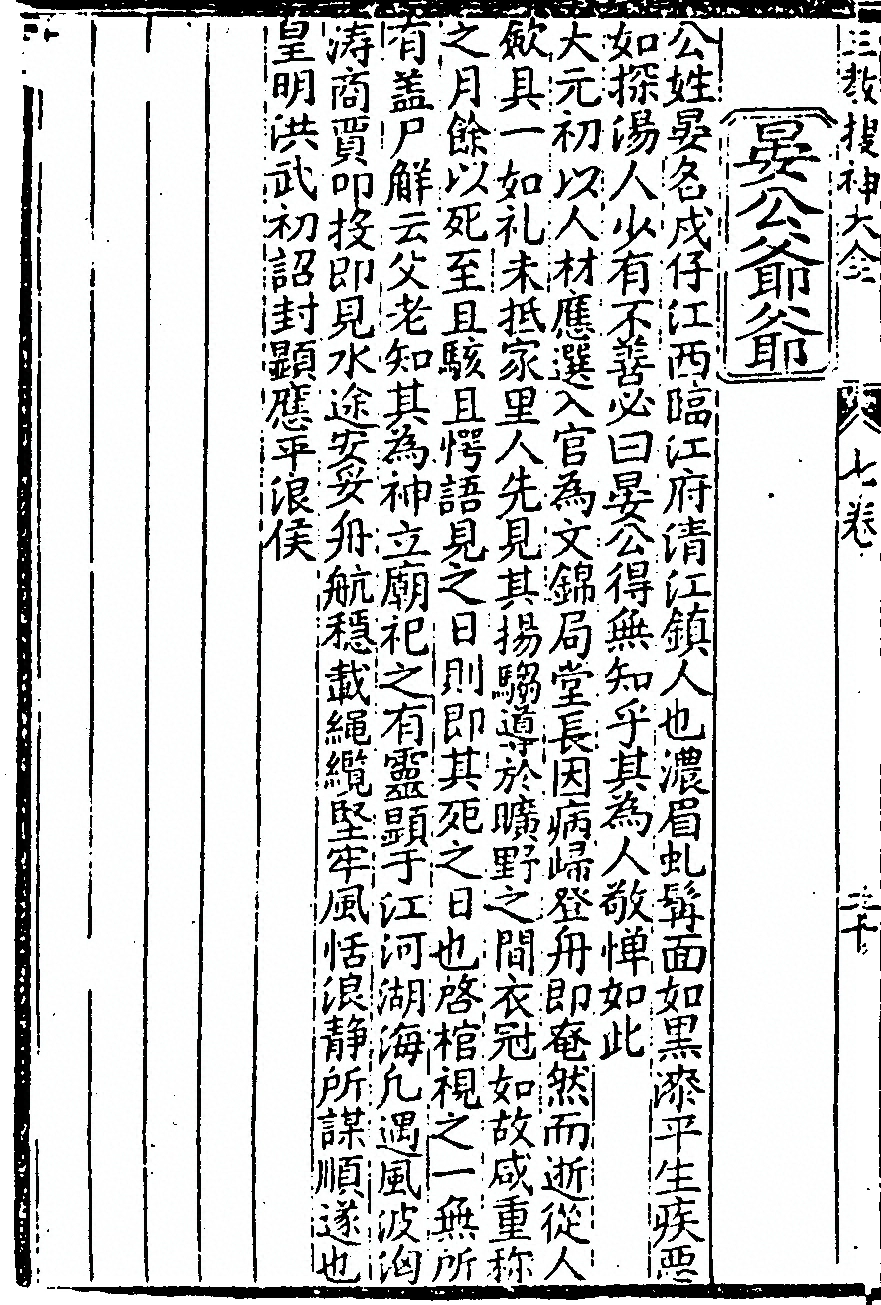 三教搜神大全
七卷
二十
晏公爺爺
公姓晏名戍仔江西臨江府清江鎮人也濃眉虬髯面如黑漆平生疾惡
如探湯人少有不善必曰晏公得無知乎其為人敬憚如此
大元初以人材應選入官為文錦局堂長因病歸登舟即奄然而逝從人
歛具一如礼未抵家里人先見其揚騶導於曠野之間衣冠如故咸重称
之月餘以死至且駭且愕語見之日則即其死之日也啓棺視之一無所
有盖尸解云父老知其為神立廟祀之有靈顯于江河湖海凢遇風波洶
涛商賈叩投即見水途安妥舟航穩載繩纜堅牢風恬浪静所謀順遂也
皇明洪武初詔封顯應平浪侯